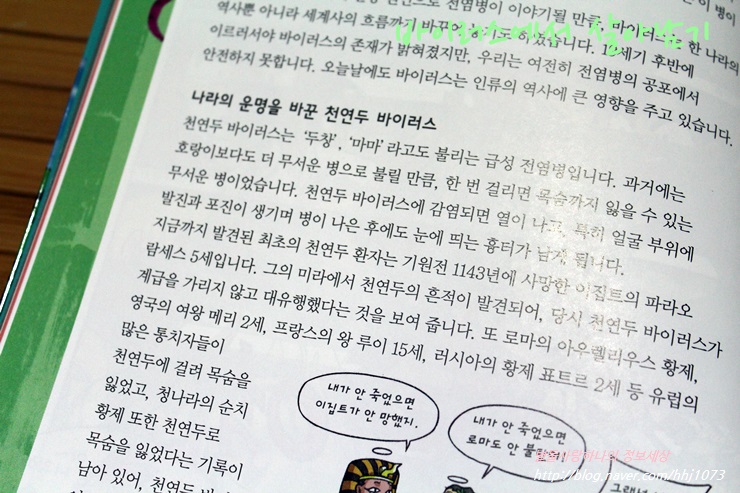 바이러스에서 살아남기
역사뿐 아니라 세계사의 흐름까지 바꾸어
전염병이 이야기될 만큼, 바이러스는 한 나라의
이르러서야 바이러스의 존재가 밝혀졌지만, 우리는 여전히 전염병의 공포에서
안전하지 못합니다. 오늘날에도 바이러스는 인류의 역사에 큰 영향을 주고 있습니다.
나라의 운명을 바꾼 천연두 바이러스
천연두 바이러스는 '두창', '마마' 라고도 불리는 급성 전염병입니다. 과거에는
호랑이보다도 더 무서운 병으로 불릴 만큼, 한 번 걸리면 목숨까지 잃을 수 있는
무서운 병이었습니다. 천연두 바이러스에 감염되면 열이 나고, 특히 얼굴 부위에
발진과 포진이 생기며 병이 나은 후에도 눈에 띄는 흉터가 남게 됩니다.
지금까지 발견된 최초의 천연두 환자는 기원전 1143년에 사망한 이집트의 파라오
람세스 5세입니다. 그의 미라에서 천연두의 흔적이 발견되어, 당시 천연두 바이러스가
계급을 가리지 않고 대유행했다는 것을 보여 줍니다. 또 로마의 아우렐리우스 황제,
영국의 여왕 메리 2세, 프랑스의 왕 루이 15세, 러시아의 황제 표트르 2세 등 유럽의
많은 통치자들이
천연두에 걸려 목숨을
잃었고, 청나라의 순치
황제 또한 천연두로
목숨을 잃었다는 기록이
남아 있어, 천연두
내가 안 죽었으면
이집트가 안 망했지.
내가 안 죽었으면
로마도 안
http://blog.naver.com/hhj1073